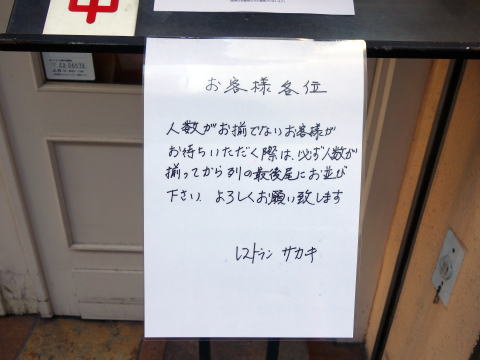 中
お客様各位
人数がお揃でないお客様が
お待ちいただく際は、必ず人数が
揃ってから列の最後尾にお並び
下さい。よろしくお願い致します
レストラン サカキ